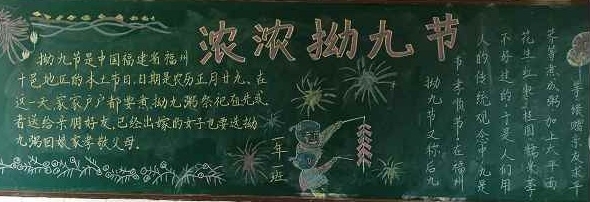 浓浓拗九节
拗九节是中国福建省福州
十邑地区的本土节日,日期是农历正月廿九。在
这一天,家家户户都要煮拗九粥祭祀祖先或
者送给亲朋好友,已经出嫁的女子也要送拗
九粥回娘家孝敬父母。
一年 班
拗九节又称后九
节、孝顺节,在福州
人的传统观念中,九是
不好走的,于是人们用
花生、红枣、桂圆、糯米、荸
荠等煮成粥,加上太平面
等馈赠亲友求平